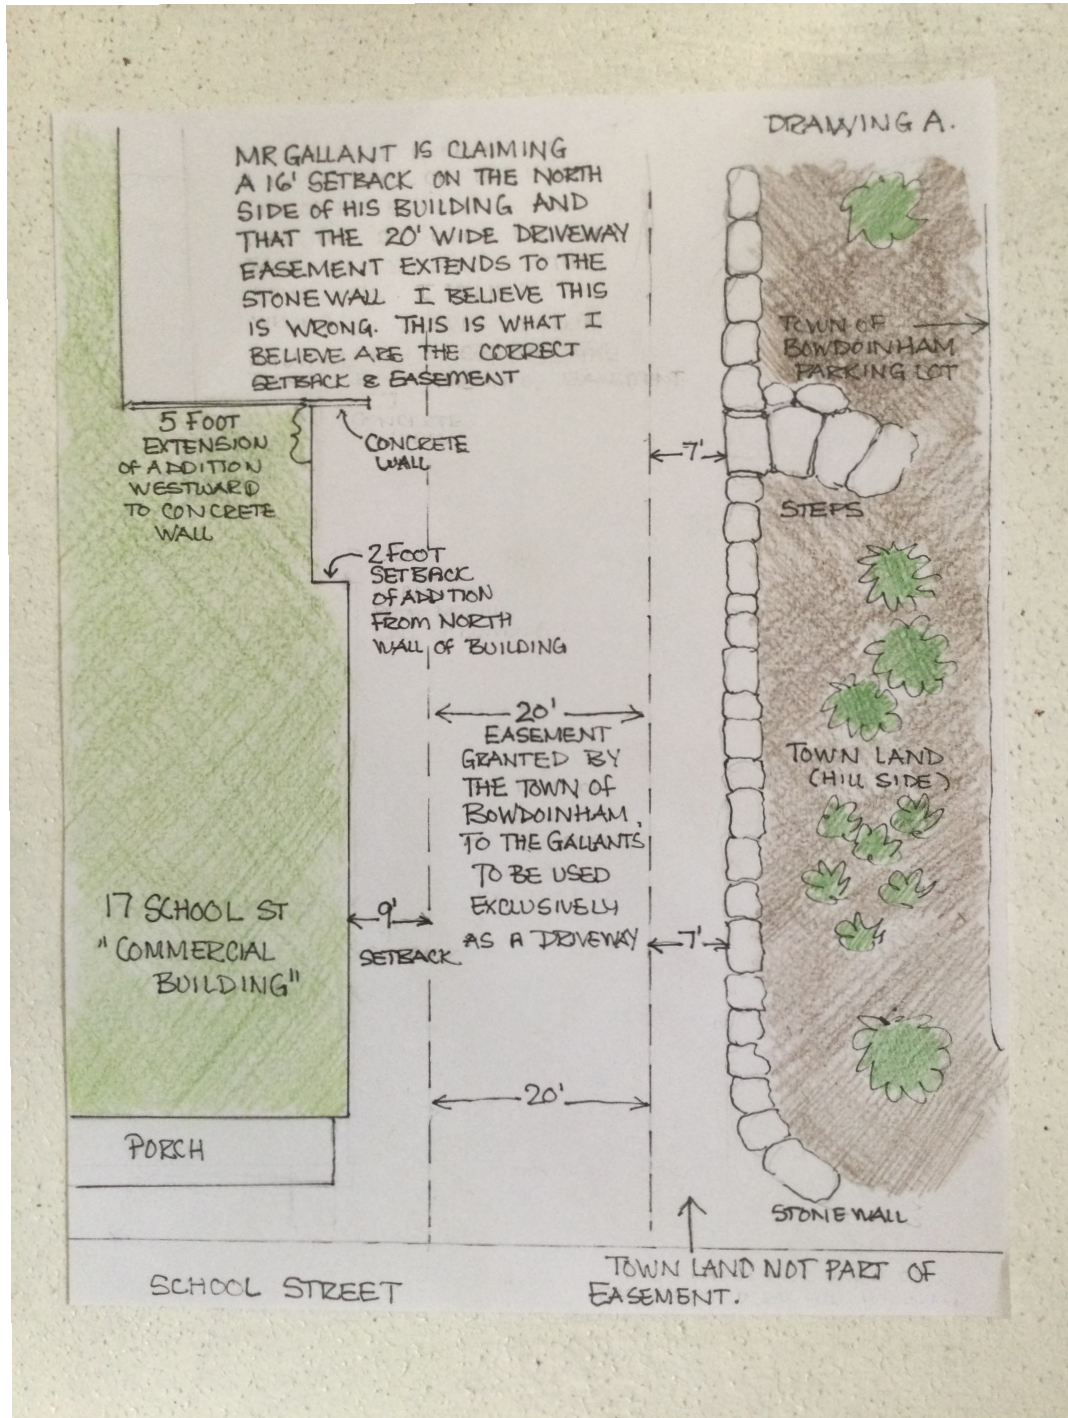 DRAWING A.
MR GALLANT IS CLAIMING
A 16' SETBACK ON THE NORTH
SIDE OF HIS BUILDING AND
THAT THE 20' WIDE DRIVEWAY
EASEMENT EXTENDS TO THE
STONE WALL I BELIEVE THIS
IS WRONG. THIS IS WHAT I
BELIEVE ARE THE CORRECT
SETBACK & EASEMENT
TOWN OF
BOWDOINHAM
PARKING LOT
5 FOOT
EXTENSION
OF ADDITION
WESTWARD
TO CONCRETE
WALL
CONCRETE
WALL
7'
STEPS
2 FOOT
SETBACK
OF ADDITION
FROM NORTH
WALL OF BUILDING
20'
EASEMENT
GRANTED BY
THE TOWN OF
BOWDOINHAM,
TO THE GALLANTS
TO BE USED
EXCLUSIVELY
AS A DRIVEWAY
TOWN LAND
(HILL SIDE)
17 SCHOOL ST
"COMMERCIAL
BUILDING"
9'
SETBACK
7'
20'
PORCH
STONE WALL
SCHOOL STREET
TOWN LAND NOT PART OF
EASEMENT.